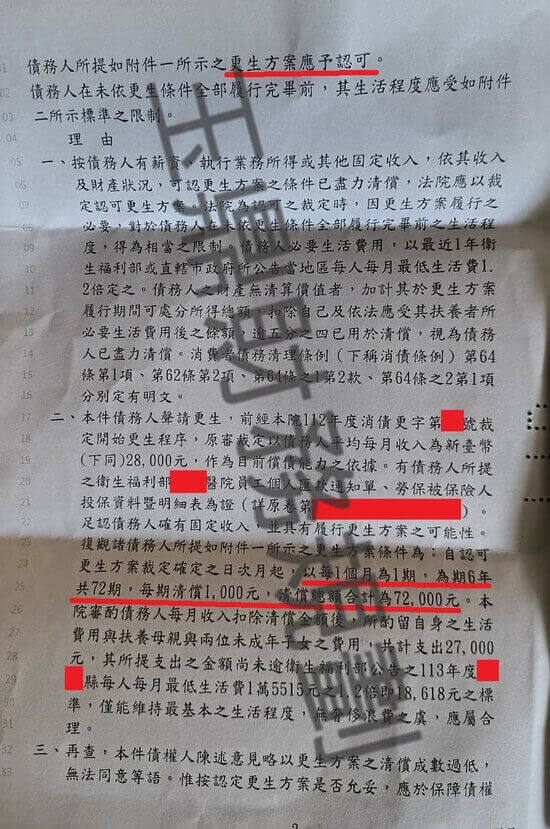 01 債務人所提如附件一所示之更生方案應予認可。
02 債務人在未依更生條件全部履行完畢前，其生活程度應受如附件
03 二所示標準之限制。
04 理由
05 一、按債務人有薪資、執行業務所得或其他固定收入，依其收入
06 及財產狀況，可認更生方案之條件已盡力清償，法院應以裁
07 定認可更生方案。法院為認可之裁定時，因更生方案履行之
08 必要，對於債務人在未依更生條件全部履行完畢前之生活程
09 度，得為相當之限制。債務人必要生活費用，以最近1年衛
10 生福利部或直轄市政府所公告當地區每人每月最低生活費1.
11 2倍定之。債務人之財產無清算價值者，加計其於更生方案
12 履行期間可處分所得總額，扣除自己及依法應受其扶養者所
13 必要生活費用後之餘額，逾五分之四已用於清償，視為債務
14 人已盡力清償。消費者債務清理條例（下稱消債條例）第64
15 條第1項、第62條第2項、第64條之1第2款、第64條之2第1項
16 分別定有明文。
17 二、本件債務人聲請更生，前經本院112年度消債更字第 號裁
18 定開始更生程序，原審裁定以債務人平均每月收入為新臺幣
19 (下同)28,000元，作為目前償債能力之依據。有債務人所提
20 之衛生福利部 醫院員工個人匯款通知單、勞保被保險人
21 投保資料暨明細表為證（詳原卷第 ）。
22 足認債務人確有固定收入，並具有履行更生方案之可能性。
23 復觀諸債務人所提如附件一所示之更生方案條件為：自認可
24 更生方案裁定確定之日次月起，以每1個月為1期，為期6年
25 共72期，每期清償1,000元，清償總額合計為72,000元。本
26 院審酌債務人每月收入扣除清償金額後，所酌留自身之生活
27 費用與扶養母親與兩位未成年子女之費用，共計支出27,000
28 元，其所提支出之金額尚未逾衛生福利部公告之113年度
29 縣每人每月最低生活費1萬5515元之1.2倍即18,618元之標
30 準，僅能維持最基本之生活程度，無奢侈浪費之虞，應屬合
31 理。
32 三、再查，本件債權人陳述意見略以更生方案之清償成數過低，
33 無法同意等語。惟按認定更生方案是否允妥，應於保障債權
2